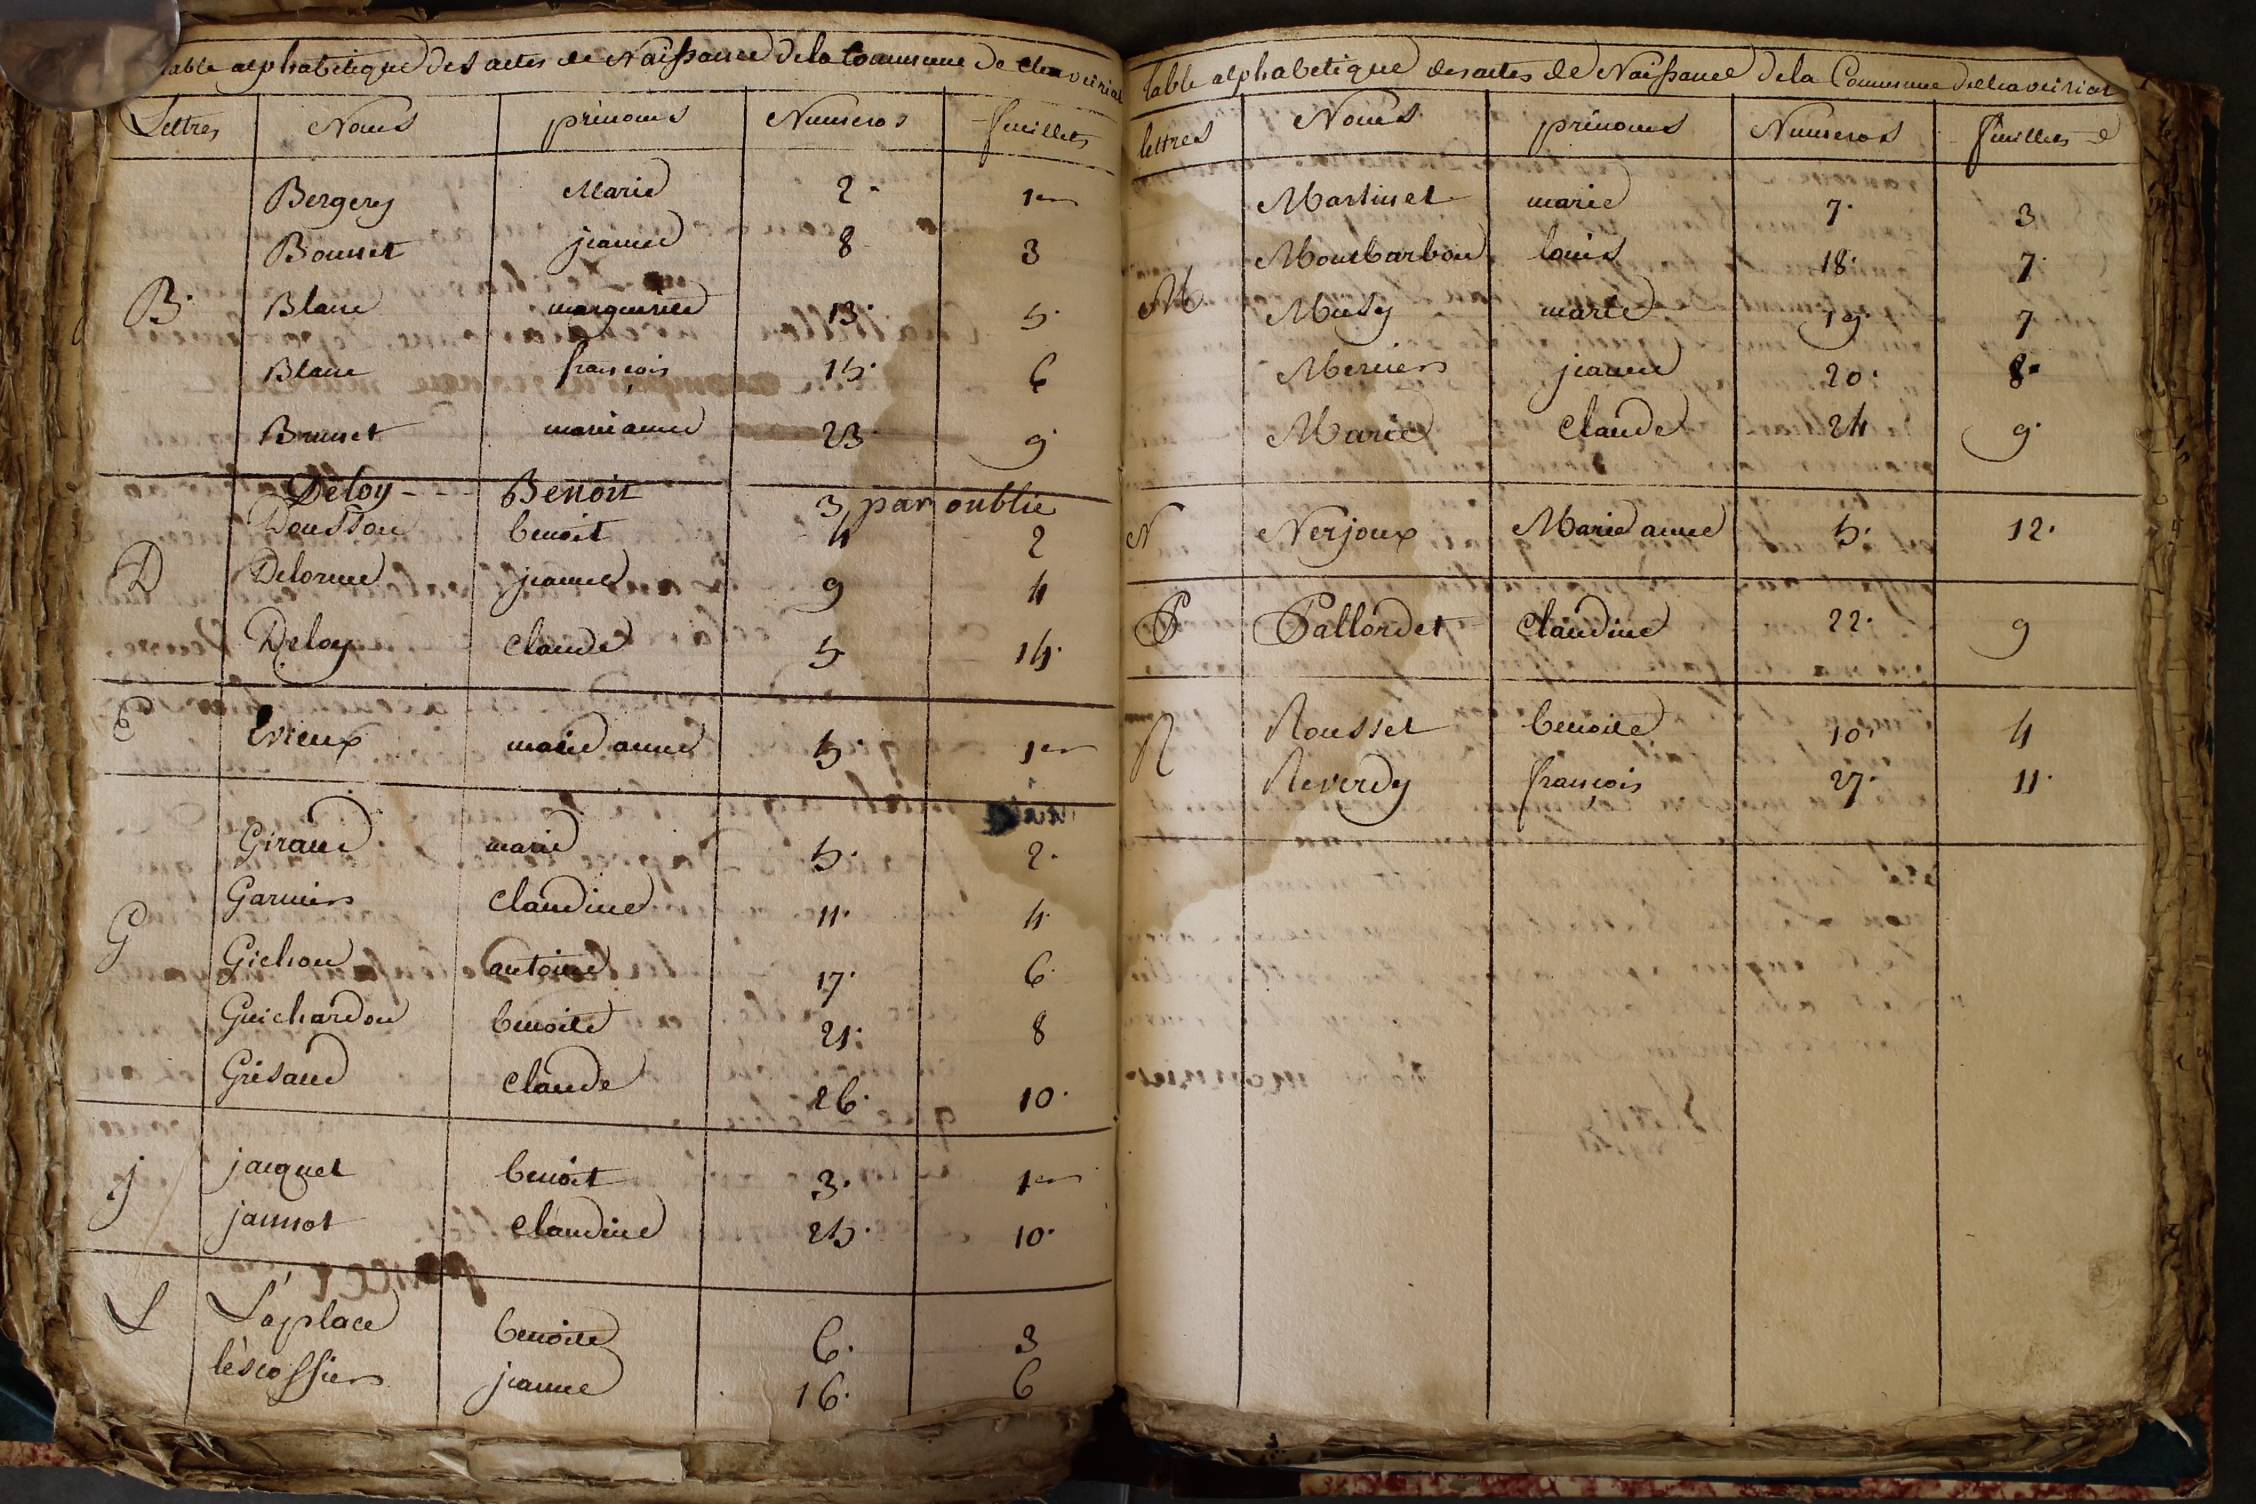 table alphabetique des actes de Naissance de la Commune de Chaveiriat
Lettres Noms prénoms Numeros feuillets
Bergery Marie 2. 1er
Bonnet jeanne 8 3
B. Blanc marguerite 13. 5.
Blanc françois 15. 6
Brunet marianne 23. 9.
Deloy - - - Benoit 3 par oublie
benoit 4 2
D Delorme jeanne 9 4
Deloy Claude 5 14.
E Evieux marie anne 5. 1er
Giraud marie 5. 2.
Garniers Claudine 11. 4.
G Gichon antoine 17. 6.
Guichardon benoite 21. 8
Grisaud Claude 26. 10.
j jacquet benoit 3. 1er
jannot Claudine 25. 10.
L Laplace benoite 6. 3
léscossiers jeanne 16. 6
table alphabetique des actes de Naissance de la Commune de Chaveiriat
lettres Noms prénoms Numeros feuillets
Martinet marie 7. 3
Montbarbon louis 18. 7.
M Musy marie 19. 7
Merciers jeanne 20. 8.
Marie Claude 24 9.
N Nerjoux Marie anne 5. 12.
P Pallordet Claudine 22. 9
R Rousset benoite 10. 4
Reverdy françois 27. 11.